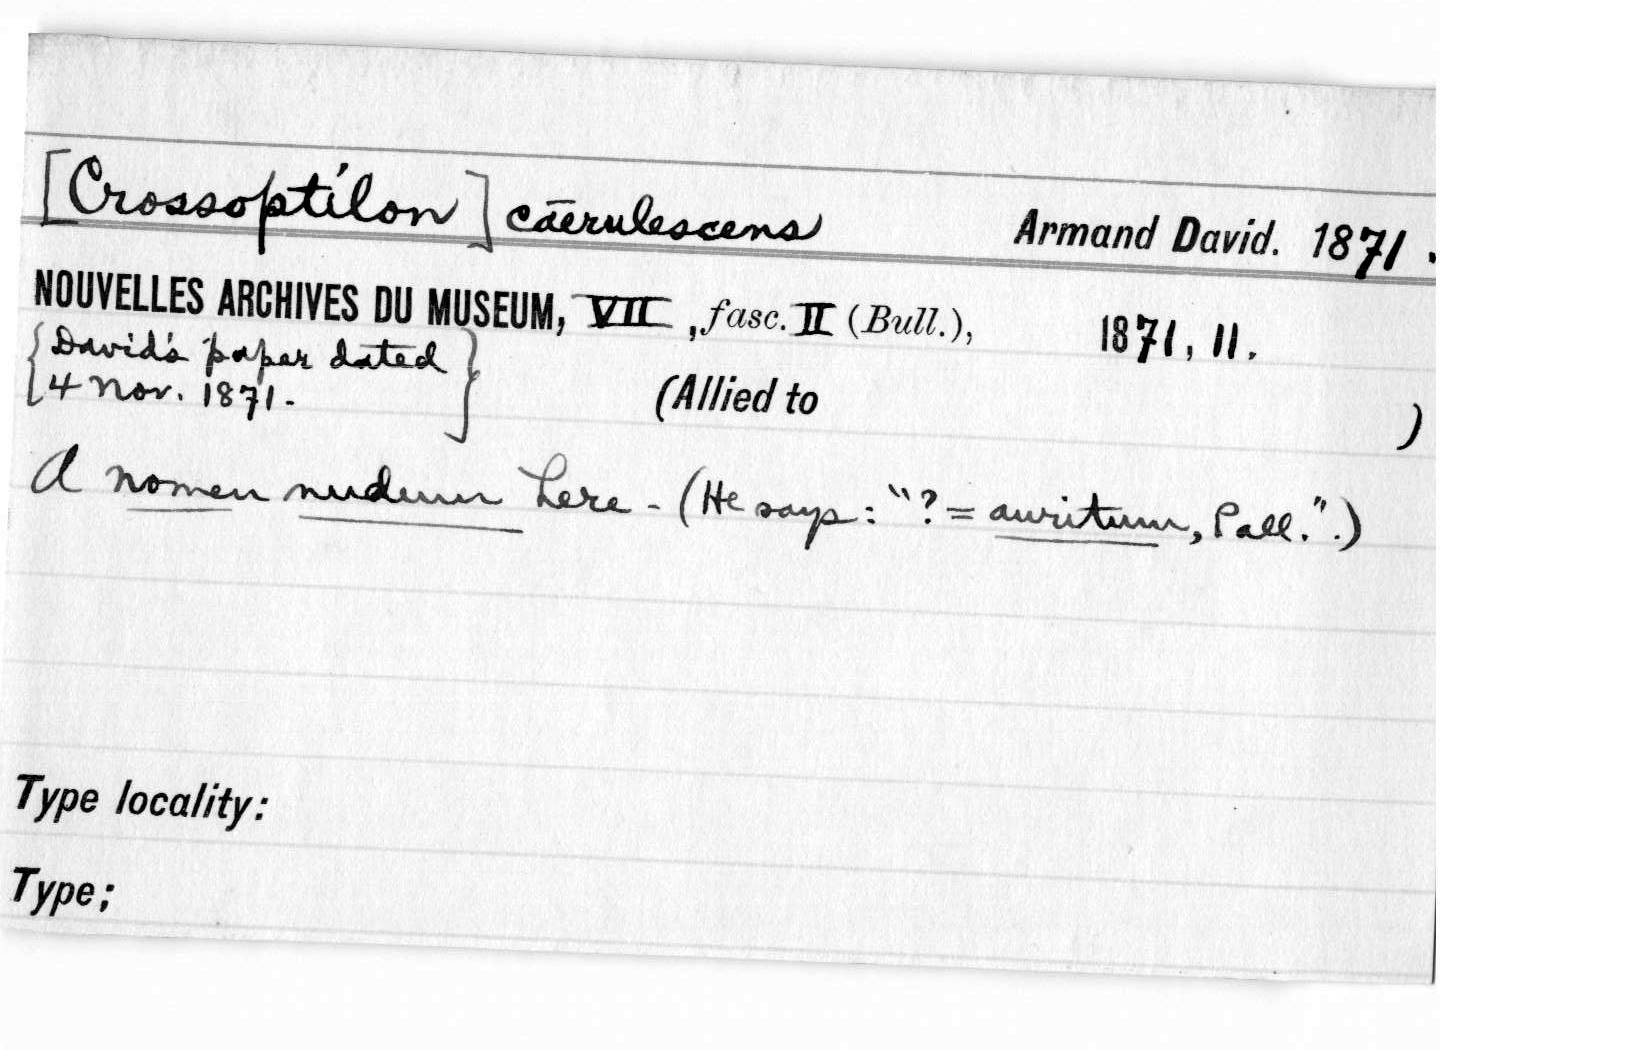 [Crossoptilon] caerulescens Armand David. 1871.
NOUVELLES ARCHIVES DU MUSEUM, VII, fasc. II (Bull.), 1871, 11.
{David's paper dated
4 Nov. 1871.}
(Allied to )
A nomen nudum here - (He says: "? = auritum, Pall.".)
Type locality:
Type;